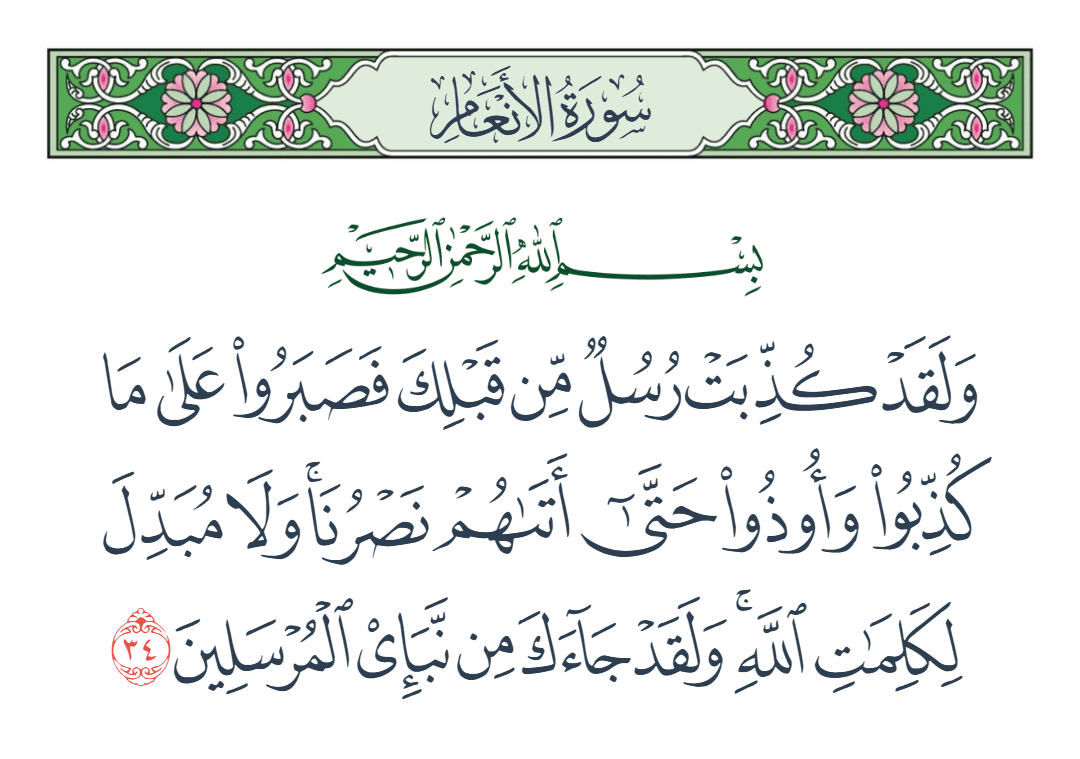 سُورَةُ الأَنْعَامِ
بِسْمِ ٱللَّهِ ٱلرَّحْمَٰنِ ٱلرَّحِيمِ
وَلَقَدْ كُذِّبَتْ رُسُلٌ مِّن قَبْلِكَ فَصَبَرُوا۟ عَلَىٰ مَا
كُذِّبُوا۟ وَأُوذُوا۟ حَتَّىٰٓ أَتَىٰهُمْ نَصْرُنَا ۚ وَلَا مُبَدِّلَ
لِكَلِمَٰتِ ٱللَّهِ ۚ وَلَقَدْ جَآءَكَ مِن نَّبَإِى۟ ٱلْمُرْسَلِينَ ٣٤